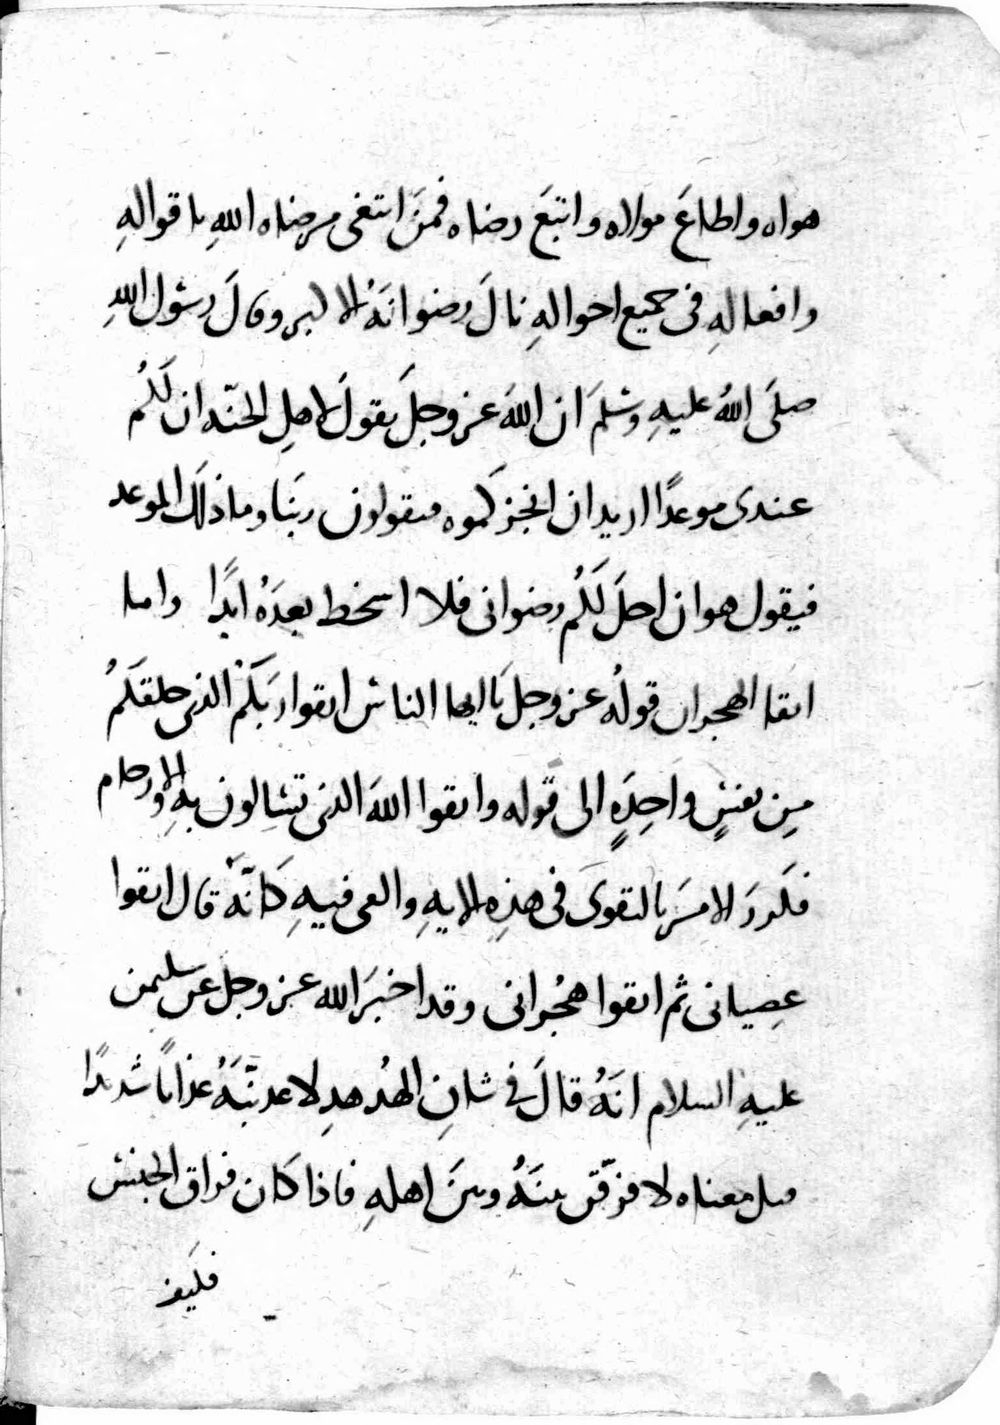 هواه واطاعَ مولاه واتبعَ رضاه فمنَ ابتغى مرضاه اللهِ باقوالهِ
وافعالهِ فى جميع احوالهِ نالَ رضوانَهُ الاكبر وقالَ رسُول اللهِ
صلَى اللهُ عليهِ وسَلمَ ان اللهَ عز وجلَ يقولَ لاهلِ الجنّه ان لَكُم
عندى موعدًا اريد ان انجزكموه فيقولون ربَنا وما ذلك الموعد
فيقول هو ان احلَ لَكُم رضوانى فلا اسخط بعدَهُ ابدًا واما
اتقا الهجران قولُه عز وجل يَا ايها الناس اتقوا ربَكَمُ الذى خلقكَمُ
مِن نفسٍ واحِدَهٍ الى قوله واتقوا اللهَ الذى تسَالون بهِ والارحام
فكررَ الامرَ بالتقوىَ فى هذِهِ الايهِ والعى فيهِ كَانّهَ قال اتقوا
عِصيانى ثم اتقوا هجُرانى وقد اخبرَ الله عز وجل عن سليمن
عليهِ السلام انَهُ قالَ فى شانِ الهُدهدِ لاعذبنّهُ عذابًا شديدًا
قيل معناه لافرّقن بينَهُ وبينَ اهلهِ فاذا كَان فراق الجنس
فكيف